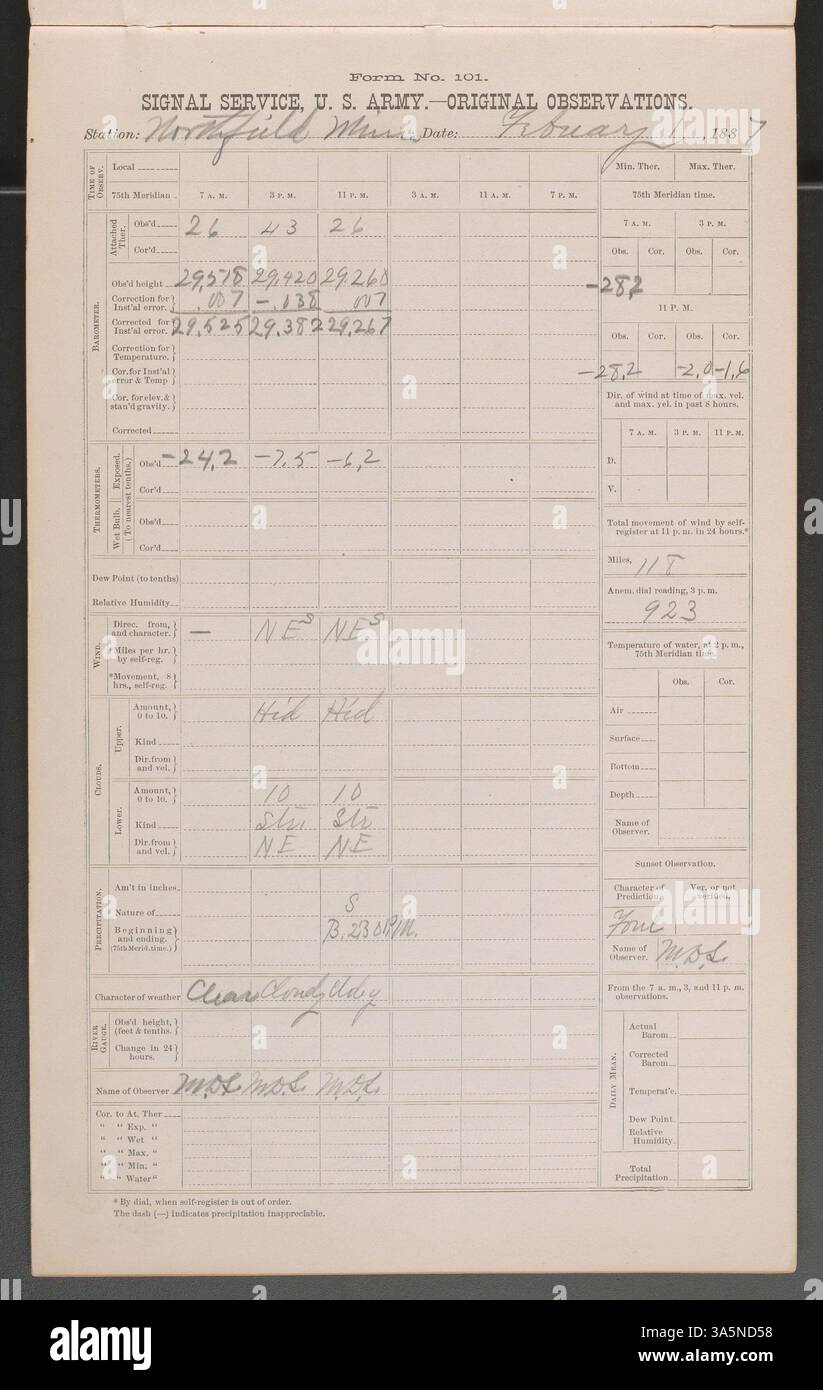 Form No. 101.
SIGNAL SERVICE, U. S. ARMY.—ORIGINAL OBSERVATIONS.
Station: Northfield Minn Date: Febuary 1, 1887
TIME OF OBSERV.
Local
75th Meridian 7 A. M. 3 P. M. 11 P. M. 3 A. M. 11 A. M. 7 P. M.
BAROMETER.
Attached Ther.
Obs'd 26 43 26
Cor'd
Obs'd height 29,518 29,420 29.260
Correction for Inst'al error. .007 -.038 007
Corrected for Inst'al error. 29.525 29.382 29,267
Correction for Temperature.
Cor. for Inst'al error & Temp
Cor. for elev. & stan'd gravity.
Corrected
THERMOMETERS.
(To nearest tenths.)
Exposed.
Obs'd -24,2 -7.5 -6,2
Cor'd
Wet Bulb.
Obs'd
Cor'd
Dew Point (to tenths)
Relative Humidity
WIND.
Direc. from, and character. — NE S NE S
*Miles per hr. by self-reg.
*Movement, 8 hrs., self-reg.
CLOUDS.
Upper.
Amount, 0 to 10. Hid Hid
Kind
Dir. from and vel.
Lower.
Amount, 0 to 10. 10 10
Kind Str. Str
Dir. from and vel. NE NE
PRECIPITATION.
Am't in inches
Nature of S
Beginning and ending. (75th Merid. time.) B. 2,30 P.M.
Character of weather Clear Cloudy Cldy
RIVER GAUGE.
Obs'd height, (feet & tenths.)
Change in 24 hours.
Name of Observer M.D.S. M.D.S. M.D.S.
Cor. to At. Ther
" " Exp. "
" " Wet "
" " Max. "
" " Min. "
" " Water "
*By dial, when self-register is out of order.
The dash (—) indicates precipitation inappreciable.
Min. Ther. Max. Ther.
75th Meridian time.
7 A. M. 3 P. M.
Obs. Cor. Obs. Cor.
-28,2
11 P. M.
Obs. Cor. Obs. Cor.
-28,2 -2,0 -1,6
Dir. of wind at time of max. vel. and max. vel. in past 8 hours.
7 A. M. 3 P. M. 11 P. M.
D.
V.
Total movement of wind by self-register at 11 p. m. in 24 hours.*
Miles, 118
Anem. dial reading, 3 p. m.
923
Temperature of water, at 2 p. m., 75th Meridian time.
Obs. Cor.
Air
Surface
Bottom
Depth
Name of Observer.
Sunset Observation.
Character of Prediction. Ver. or not verified.
Name of Observer. M.D.S.
From the 7 a. m., 3, and 11 p. m. observations.
DAILY MEAN.
Actual Barom
Corrected Barom
Temperat'e.
Dew Point.
Relative Humidity.
Total Precipitation
alamy
Image ID: 3A5ND58
www.alamy.com